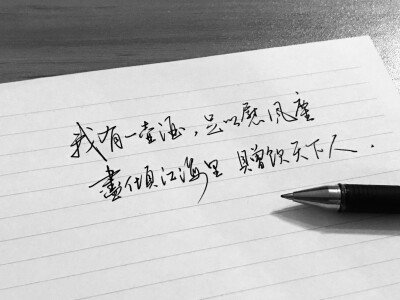 我有一壶酒，足以慰风塵
盡傾江海里 贈饮天下人．